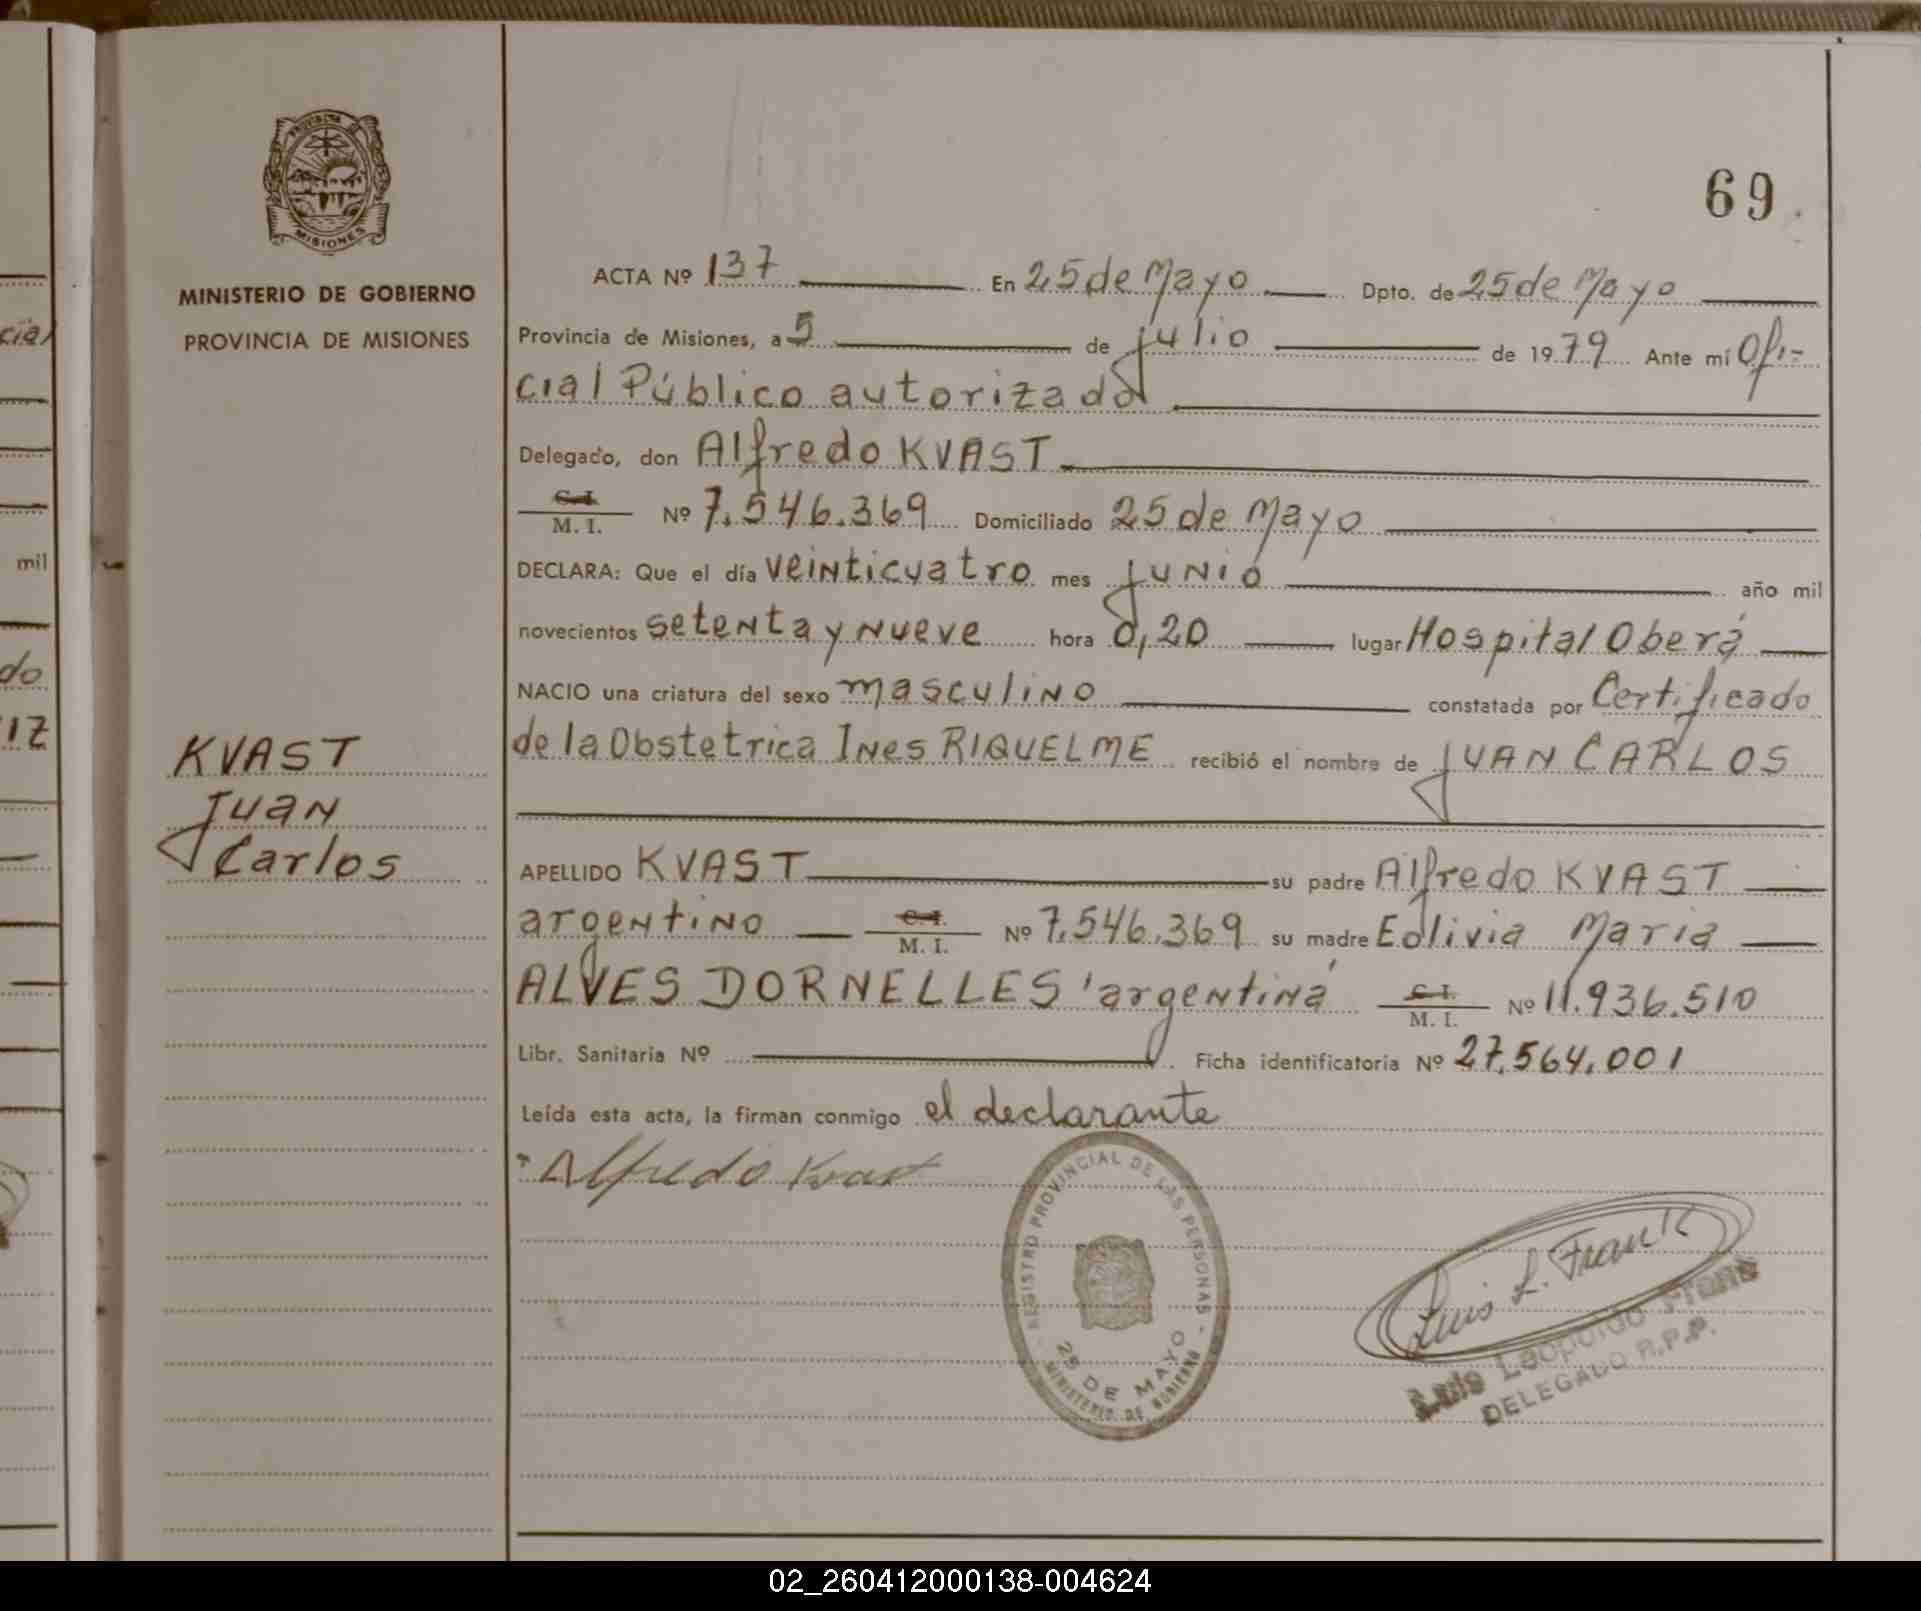 69
PROVINCIA DE
MISIONES
MINISTERIO DE GOBIERNO
PROVINCIA DE MISIONES
ACTA Nº 137 En 25 de Mayo Dpto. de 25 de Mayo
Provincia de Misiones, a 5 de julio de 1979 Ante mí Ofi-
cial Público autorizado
Delegado, don Alfredo KVAST
C. I.
M. I. Nº 7.546.369 Domiciliado 25 de Mayo
DECLARA: Que el día veinticuatro mes junio año mil
novecientos setenta y nueve hora 0,20 lugar Hospital Oberá
NACIO una criatura del sexo masculino constatada por Certificado
de la Obstetrica Ines RIQUELME recibió el nombre de JUAN CARLOS
KVAST
Juan
Carlos
APELLIDO KVAST su padre Alfredo KVAST
argentino C. I. M. I. Nº 7.546.369 su madre Edlivia Maria
ALVES DORNELLES argentina C. I. M. I. Nº 11.936.510
Libr. Sanitaria Nº Ficha identificatoria Nº 27.564.001
Leída esta acta, la firman conmigo el declarante
Alfredo Kvast
REGISTRO PROVINCIAL DE LAS PERSONAS
25 DE MAYO
MINISTERIO DE GOBIERNO
Luis L. Frank
Luis Leopoldo Frank
DELEGADO R.P.P.
cial
mil
do
IZ
02_260412000138-004624